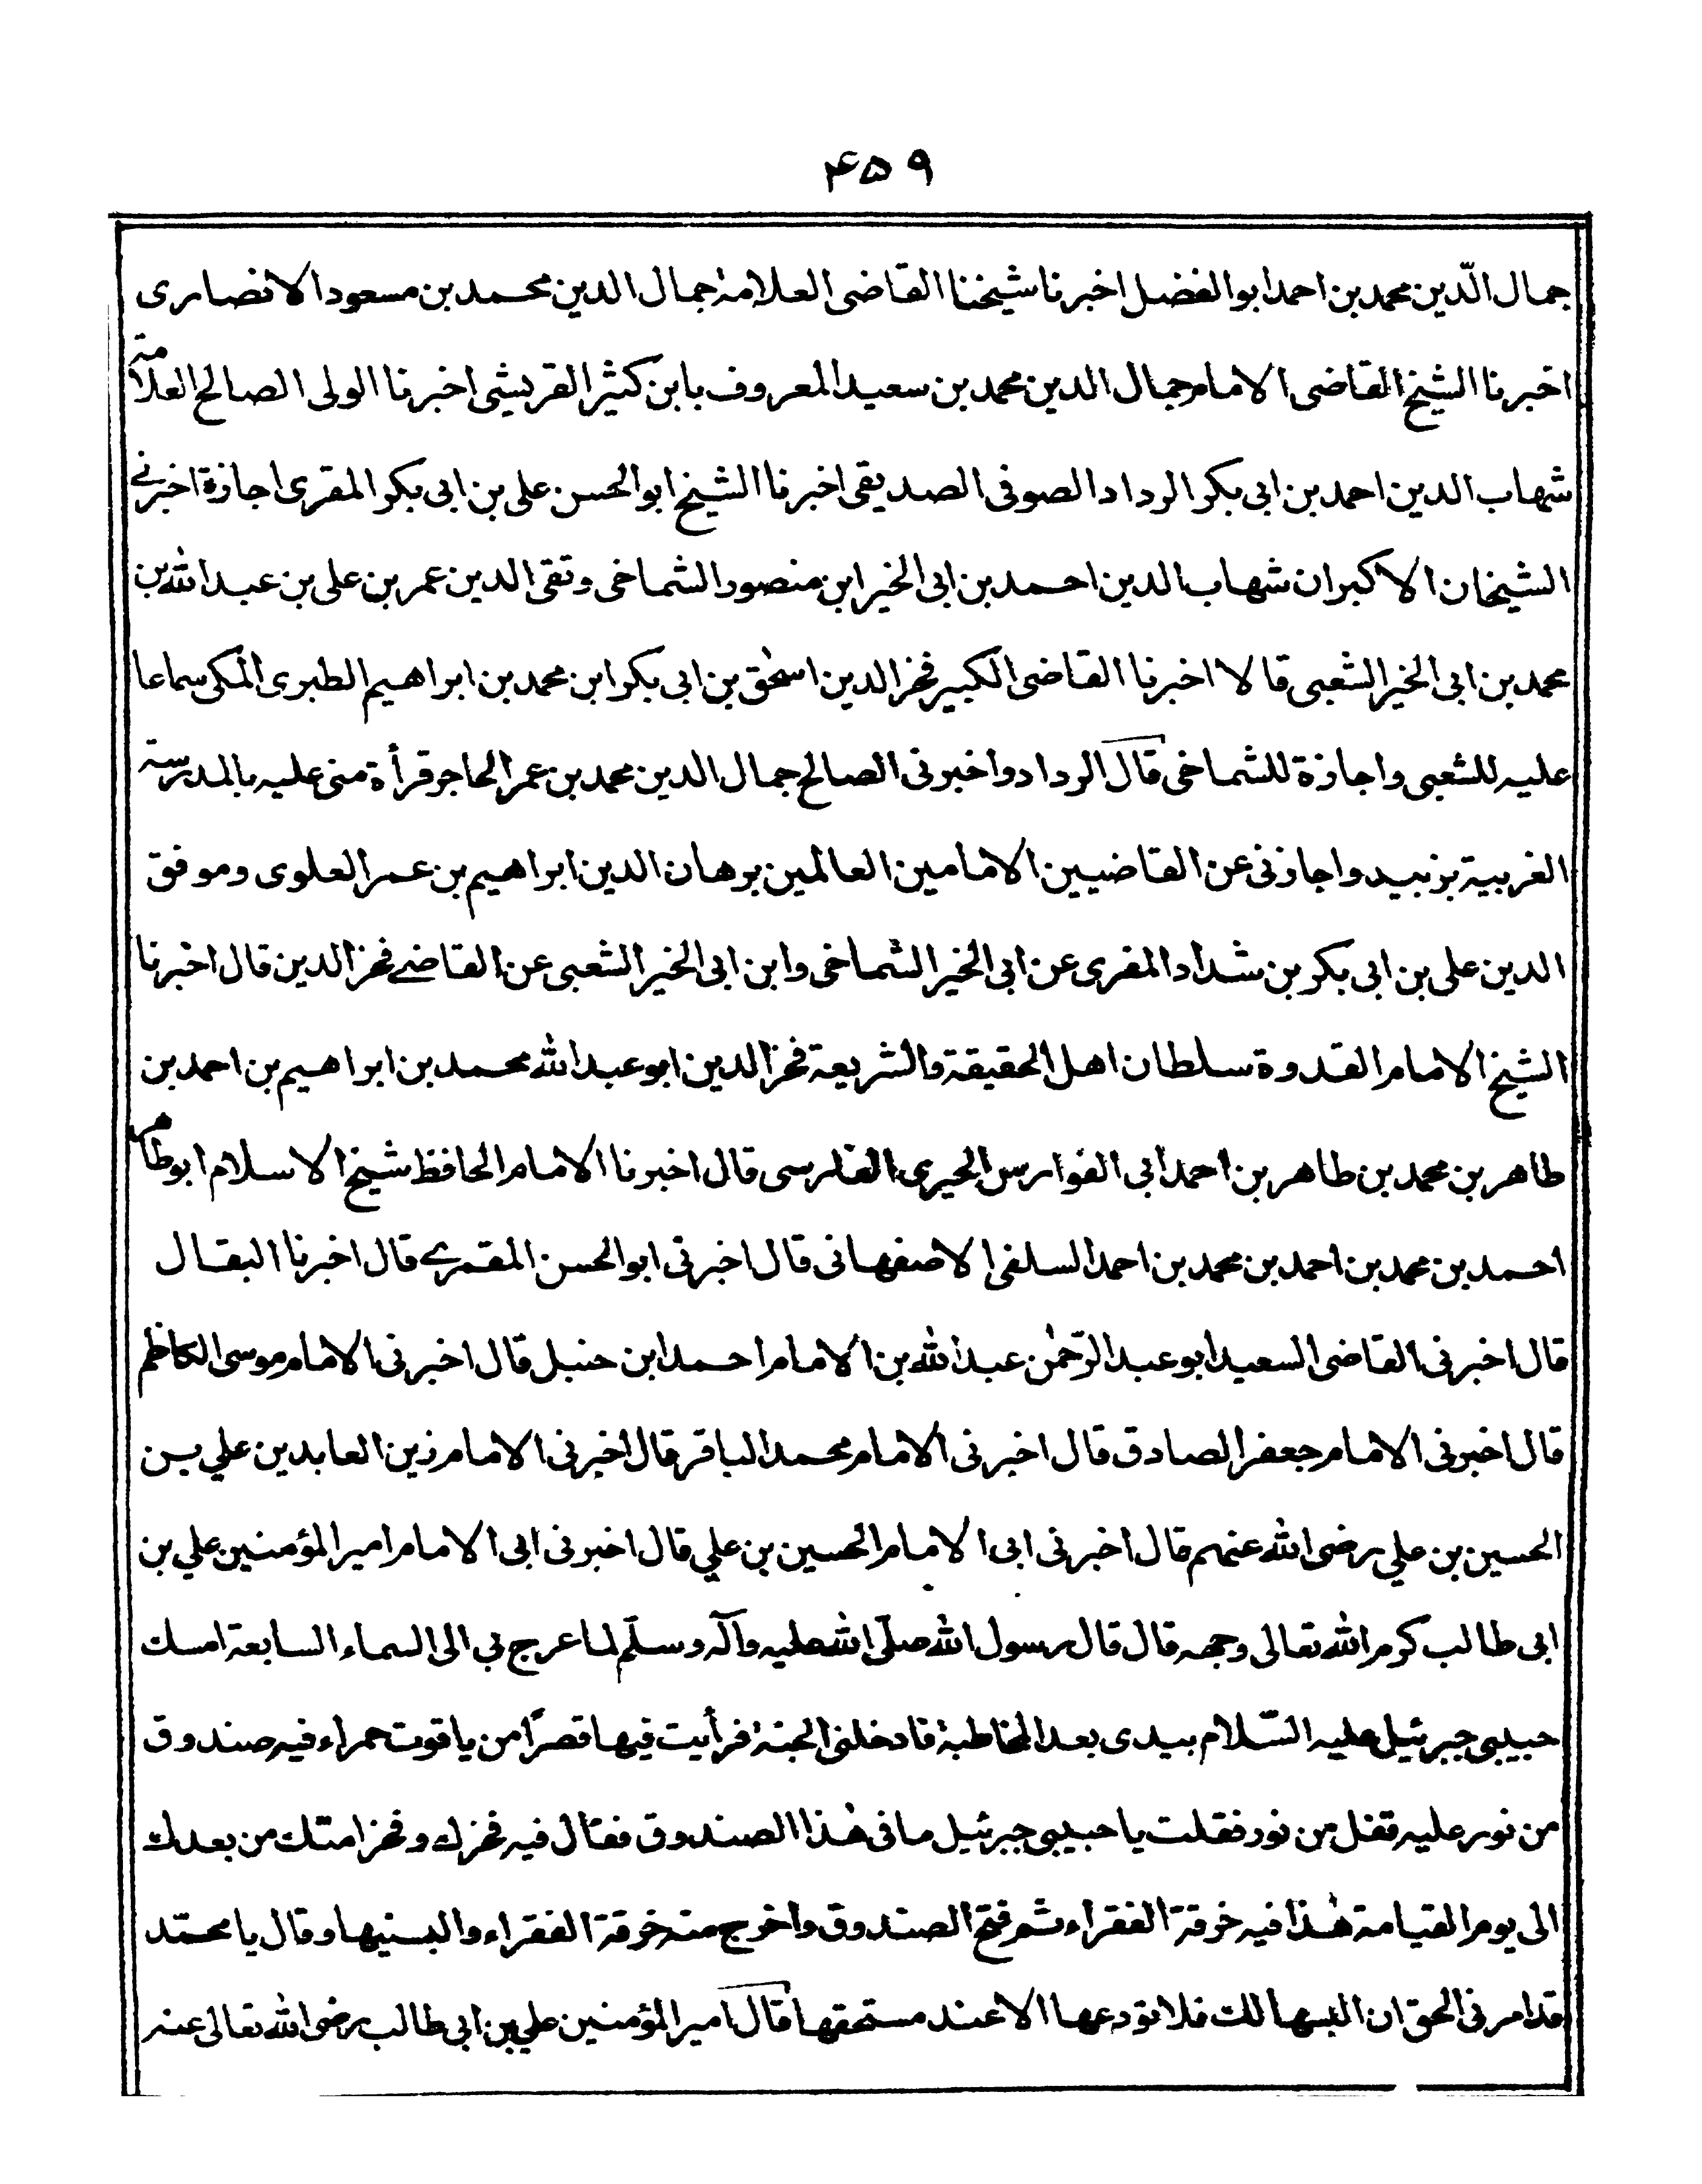 ۴۵۹
جمال الدّين محمد بن احمد ابو الفضل اخبرنا شيخنا القاضى العلامة جمال الدين محمد بن مسعود الانصارى
اخبرنا الشيخ القاضى الامام جمال الدين محمد بن سعيد المعروف بابن كثير القريشى اخبرنا الولى الصالح العلامة
شهاب الدين احمد بن ابى بكر الرداد الصوفى الصديقى اخبرنا الشيخ ابو الحسن على بن ابى بكر المقرى اجازة اخبرنے
الشيخان الاكبران شهاب الدين احمد بن ابى الخير ابن منصور الشماخى وتقى الدين عمر بن على بن عبد الله بن
محمد بن ابى الخير الشعبى قالا اخبرنا القاضى الكبير فخر الدين اسحٰق بن ابى بكر ابن محمد بن ابراهيم الطبرى المكى سماعا
عليه للشعبى واجازة للشماخى قال الرداد واخبرنى الصالح جمال الدين محمد بن عمر الحاجر قرأة منى عليه بالمدرسة
الغربية بزبيد واجازنى عن القاضيين الامامين العالمين برهان الدين ابراهيم بن عمر العلوى وموفق
الدين على بن ابى بكر بن شداد المقرى عن ابى الخير الشماخى وابن ابى الخير الشعبى عن القاضے فخر الدين قال اخبرنا
الشيخ الامام القدوة سلطان اهل الحقيقة والشريعة فخر الدين ابو عبد الله محمد بن ابراهيم بن احمد بن
طاهر بن محمد بن طاهر بن احمد ابى الفوارس الحيرى الفارسى قال اخبرنا الامام الحافظ شيخ الاسلام ابو طاهر
احمد بن محمد بن احمد بن محمد بن احمد السلفى الاصفهانى قال اخبرنى ابو الحسن المقرے قال اخبرنا البقال
قال اخبرنى القاضى السعيد ابو عبد الرّحمٰن عبد الله بن الامام احمد ابن حنبل قال اخبرنى الامام موسى الكاظم
قال اخبرنى الامام جعفر الصادق قال اخبرنى الامام محمد الباقر قال اخبرنى الامام زين العابدين علي بن
الحسين بن علي رضى الله عنهم قال اخبرنى ابى الامام الحسين بن علي قال اخبرنى ابى الامام امير المؤمنين علي بن
ابى طالب كرم الله تعالى وجهه قال قال رسول الله صلّى الله عليه وآله وسلّم لما عرج بي الى السماء السابعة امسك
حبيبى جبرئيل عليه السّلام بيدى بعد المخاطبة فادخلنى الجنة فرأيت فيها قصرًا من ياقوت حمراء فيه صندوق
من نور عليه قفل من نور فقلت يا حبيبى جبرئيل ما فى هٰذا الصندوق فقال فيه فخرك وفخر امتك من بعدك
الى يوم القيامة هٰذا فيه خرقة الفقراء ثم فتح الصندوق واخرج منه خرقة الفقراء والبسنيها وقال يا محمّد
قد امرنى الحق ان البسها لك فلا تودعها الا عند مستحقها قال امير المؤمنين علي بن ابى طالب رضى الله تعالى عنه